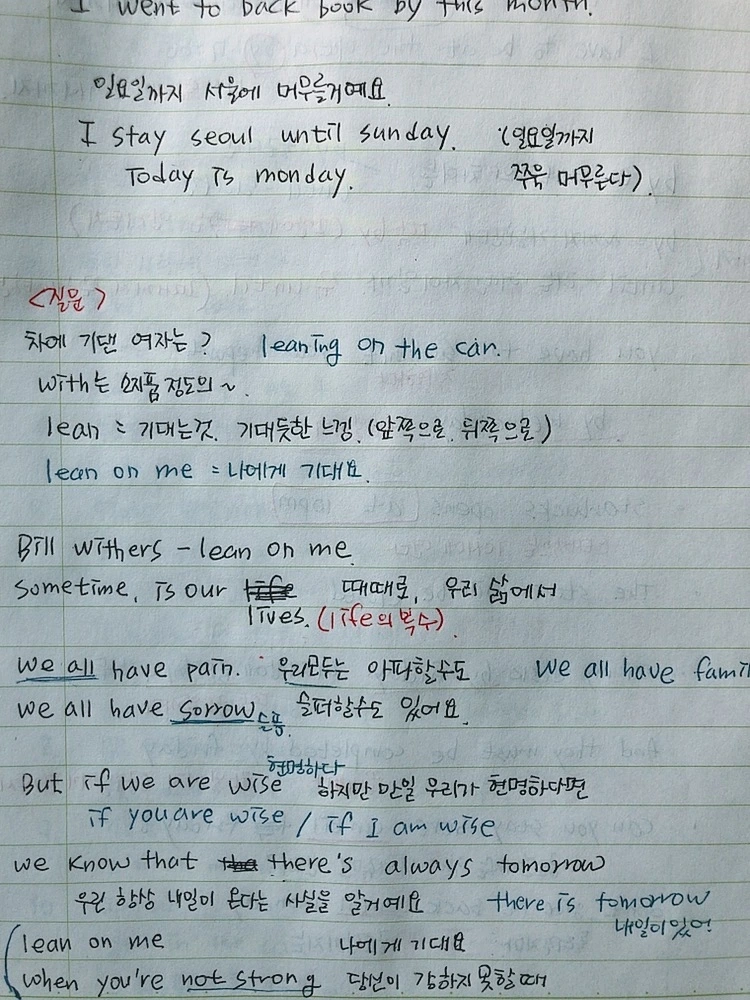 I went to back book by this month.
일요일까지 서울에 머무를거예요.
I stay seoul until sunday. (일요일까지
Today is monday. 쭈욱 머무른다).
<질문>
차에 기댄 여자는? leaning on the car.
with는 소지품 정도의 ~.
lean = 기대는것. 기대듯한 느낌. (앞쪽으로. 뒤쪽으로)
lean on me = 나에게 기대요.
Bill withers - lean on me.
sometime, is our life 때때로, 우리 삶에서
lives. (life의 복수).
we all have pain. 우리모두는 아파할수도 we all have fami
we all have sorrow 슬픔 슬퍼할수도 있어요.
현명하다
But if we are wise 하지만 만일 우리가 현명하다면
if you are wise / if I am wise
we know that the there's always tomorrow
우린 항상 내일이 온다는 사실을 알거예요 there is tomorrow
내일이있어
lean on me 나에게 기대요
when you're not strong 당신이 강하지 못할때